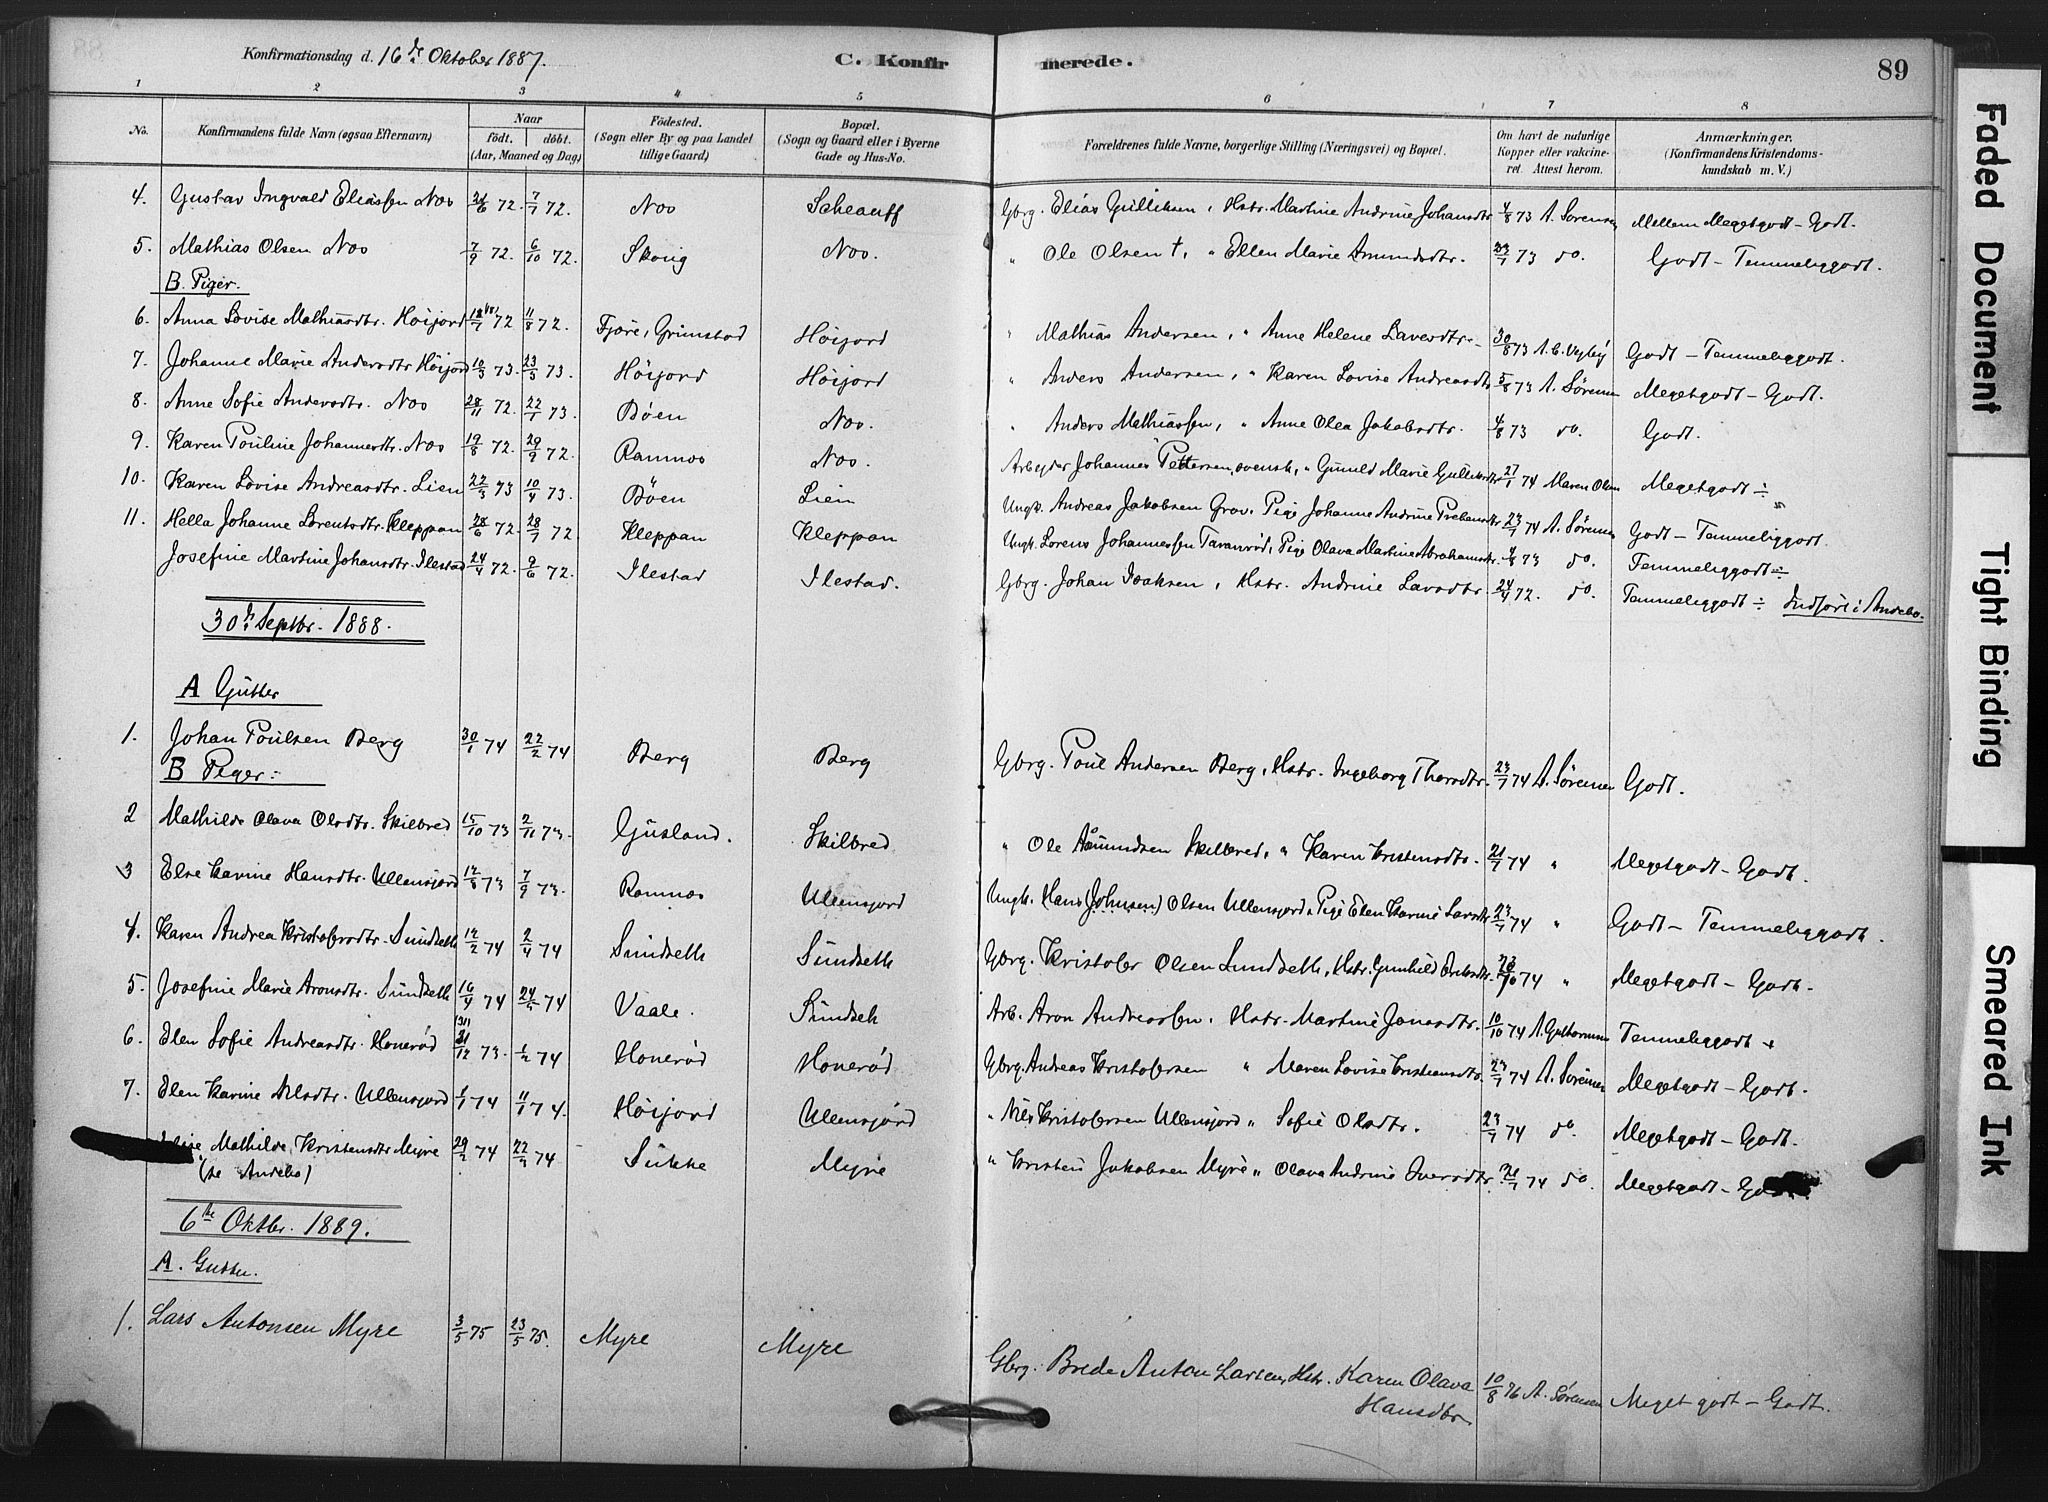 Konfirmationsdag d. 16de Oktober 1887.
C. Konfirmerede.
89
1 2 3 4 5 6 7 8
No.
Konfirmandens fulde Navn (ogsaa Efternavn)
Naar
födt. döbt.
(Aar, Maaned og Dag)
Födested.
(Sogn eller By og paa Landet
tillige Gaard)
Bopæl.
(Sogn og Gaard eller i Byerne
Gade og Hus-No.
Forældrenes fulde Navne, borgerlige Stilling (Næringsvei) og Bopæl.
Om havt de naturlige
Kopper eller vakcine-
ret. Attest herom.
Anmærkninger.
(Konfirmandens Kristendoms-
kundskab m. V.)
4. Gustav Ingvald Eliassen Nos 72. 7/7 72. Nos Gbrg. Elias Gulliksen, Hstr. Martine Andrine Johansdtr 4/8 73 A. Sørensen Mellem Megetgodt - Godt.
5. Mathias Olsen Nos 7/9 72. 6/10 72. Skorig Nos. " Ole Olsen †, " Ellen Marie Amundsdtr. 23/7 73 do. Godt - Temmeliggodt.
B. Piger.
6. Anna Lovise Mathiasdtr. Höijord 18/7 72 11/8 72. Fjære, Grimstad Höijord " Mathias Andersen, " Anne Helene Lavesdtr. 30/8 73 Godt - Temmeliggodt.
7. Johanne Marie Andersdtr Höijord 10/3 73. 23/3 73. Höijord Höijord " Anders Andersen, " Karen Lovise Andreasdtr 5/8 73 A. Sørensen Megetgodt - Godt.
8. Anne Sofie Andersdtr. Nos 28/11 72. 22/1 73. Böen Nos. " Anders Mathiassen, " Anne Olea Jakobsdtr. 4/8 73 do. Godt.
9. Karen Pouline Johannesdtr. Nos 19/8 72. 29/9 72. Ramnos Nos. Arbeyder Johannes Pettersen, svensk, " Gunild Marie Gulliksdtr 27/1 74 Maren Olsen Megetgodt ÷
10. Karen Lovise Andreasdtr. Lien 22/3 73 10/4 73. Böen Lien Ungk. Andreas Jakobsen Grav. Pige Johanne Andrine Prebensdtr 23/7 74 A. Sørensen Godt - Temmeliggodt.
11. Hella Johanne Lorentsdtr. Kleppan 28/6 72. 28/7 72 Kleppan Kleppan Ungk. Lorens Johannessen Taranrød, Pige Olava Martine Abrahamsdtr. 4/8 73 do. Temmeliggodt ÷
Josefine Martine Johansdtr. Ilestad 24/4 72. 9/6 72. Ilestad Ilestad. Gbrg. Johan Isaksen, Hstr. Andrine Larsdtr. 24/4 72. do. Temmeliggodt ÷ Indført i Andebo.
30te Septbr. 1888.
A Gutter
1. Johan Poulsen Berg 30/1 74 22/2 74 Berg Berg Gbrg. Poul Andersen Berg, Hstr. Ingeborg Thorsdtr. 23/7 74 A. Sørensen Godt.
B Piger:
2 Mathilde Olava Olsdtr. Skilbred 15/10 73 2/11 73. Gusland. Skilbred " Ole Åmundsen Skilbred, " Karen Kristensdtr. 21/7 74 " Megetgodt - Godt.
3 Else Karine Hansdtr. Ullensjord 12/8 73 7/9 73. Ramnos Ullensjord Ungk. Hans (Johnsen) Olsen Ullensjord, Pige Elen Karine Larsdtr 23/7 74 " Godt - Temmeliggodt.
4. Karen Andrea Kristofersdtr. Sundseth 12/2 74 2/4 74 Sundseth Sundseth Gbrg. Kristofer Olsen Sundseth, Hstr. Gunhild Eriksdtr. 74 " Megetgodt - Godt.
5. Josefine Marie Aronsdtr. Sundseth 16/4 74 74 Vaale. Sundseth Arb. Aron Andreassen, Hstr. Martine Jonasdtr. 10/10 74 Temmeliggodt +
6. Elen Sofie Andreasdtr. Honerød 31/12 73. 1/2 74 Honerød Honerød Gbrg. Andreas Kristofersen " Maren Lovise Kristiansdtr. 23/7 74 A. Sørensen Megetgodt - Godt.
7. Elen Karine Nilsdtr. Ullensjord 1/1 74 11/1 74. Höijord Ullensjord " Nils Kristofersen Ullensjord " Sofie Olsdtr. 23/7 74 do. Megetgodt - Godt.
Mathilde Kristensdtr Myre 74 74 Sukke Myre " Kristen Jakobsen Myre " Olava Andrine Iversdtr. 21/7 74 do. Megetgodt - Godt
(se Andebo)
6te Oktbr. 1889.
A. Gutter.
1. Lars Antonsen Myre 3/5 75 23/5 75. Myre Myre Gbrg. Brede Anton Larsen, Hstr. Karen Olava 10/8 76 A. Sørensen Meget godt - Godt.
Hansdtr.
Faded Document
Tight Binding
Smeared Ink